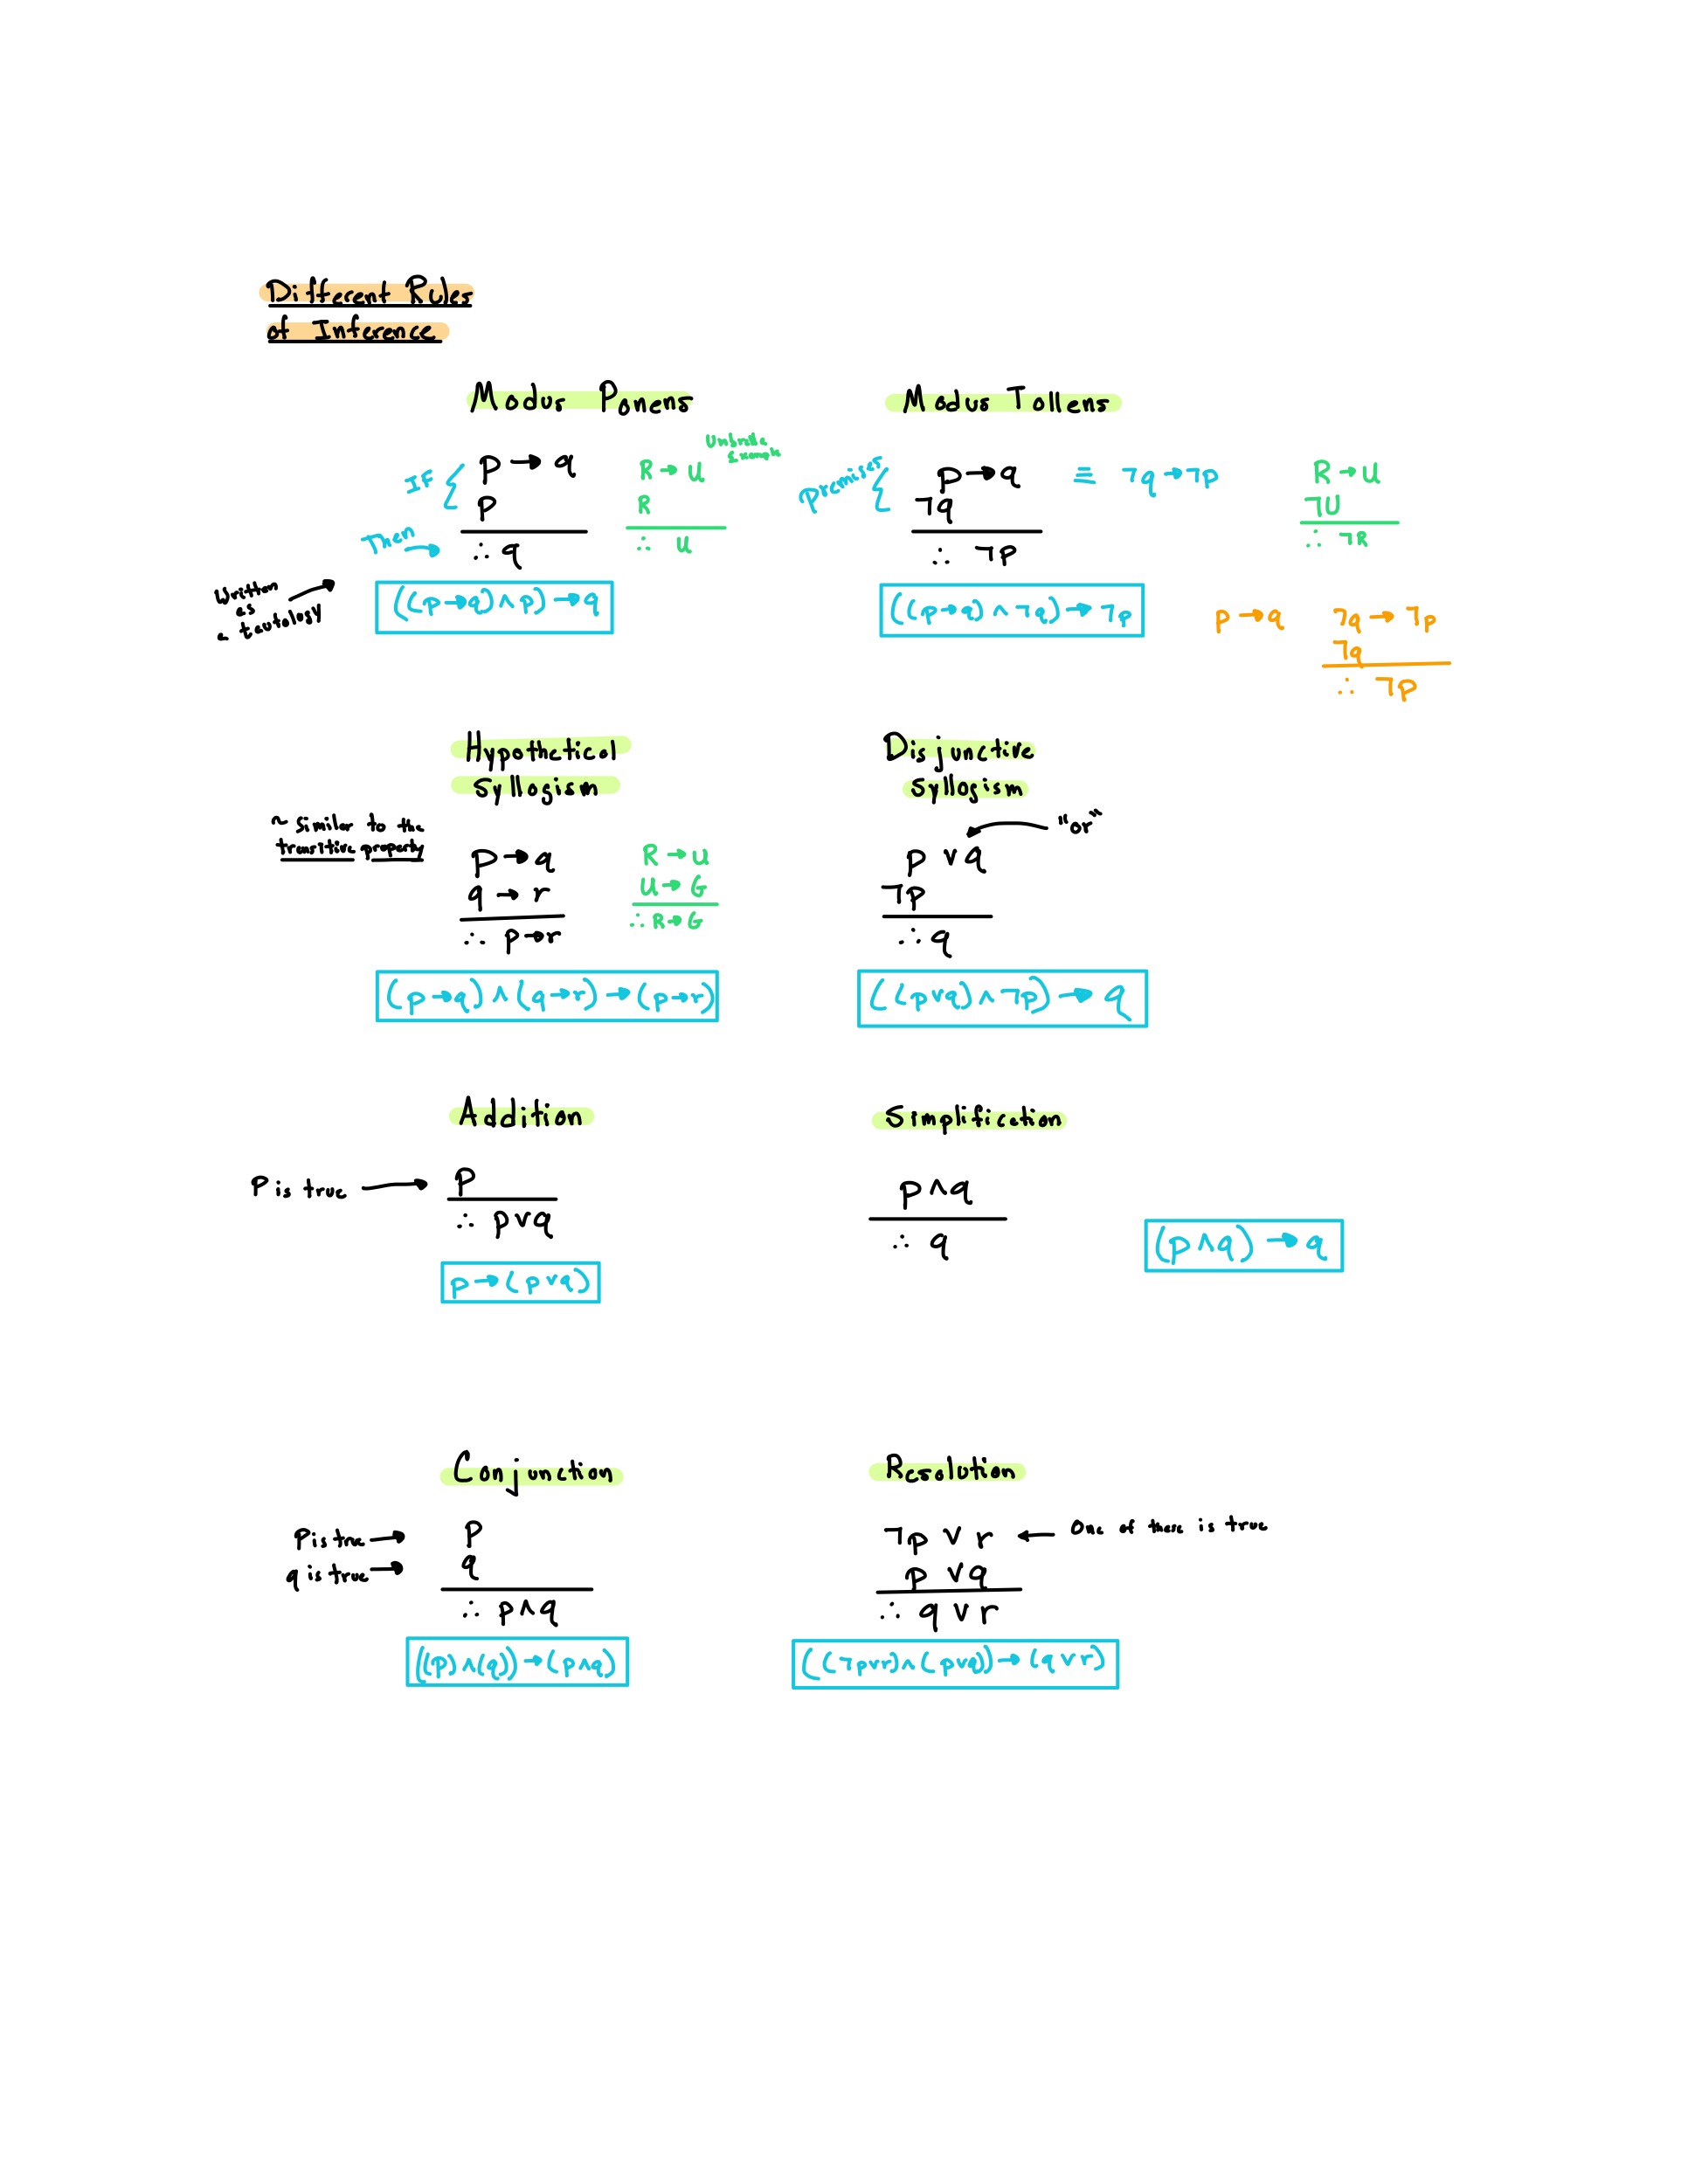 Different Rules
of Inference
Modus Ponens
IF { p → q
p
Then → ∴ q
Umbrella
Example
R → U
R
∴ U
Written
as
a tautology
((p→q)∧p)→q
Modus Tollens
Premises { p→q ≡ ¬q→¬p
¬q
∴ ¬p
((p→q)∧¬q)→¬p
R→U
¬U
∴ ¬R
p→q ¬q→¬p
¬q
∴ ¬p
Hypothetical
Syllogism
~ Similar to the
transitive property
p→q
q→r
∴ p→r
R→U
U→G
∴ R→G
(p→q)∧(q→r)→(p→r)
Disjunctive
Syllogism
"or"
p∨q
¬p
∴ q
((p∨q)∧¬p)→q
Addition
P is true → p
∴ p∨q
p→(p∨q)
Simplification
p∧q
∴ q
(p∧q)→q
Conjunction
P is true → p
q is true → q
∴ p∧q
((p)∧(q))→(p∧q)
Resolution
¬p∨r ← One of these is true
p∨q
∴ q∨r
((¬p∨r)∧(p∨q))→(q∨r)